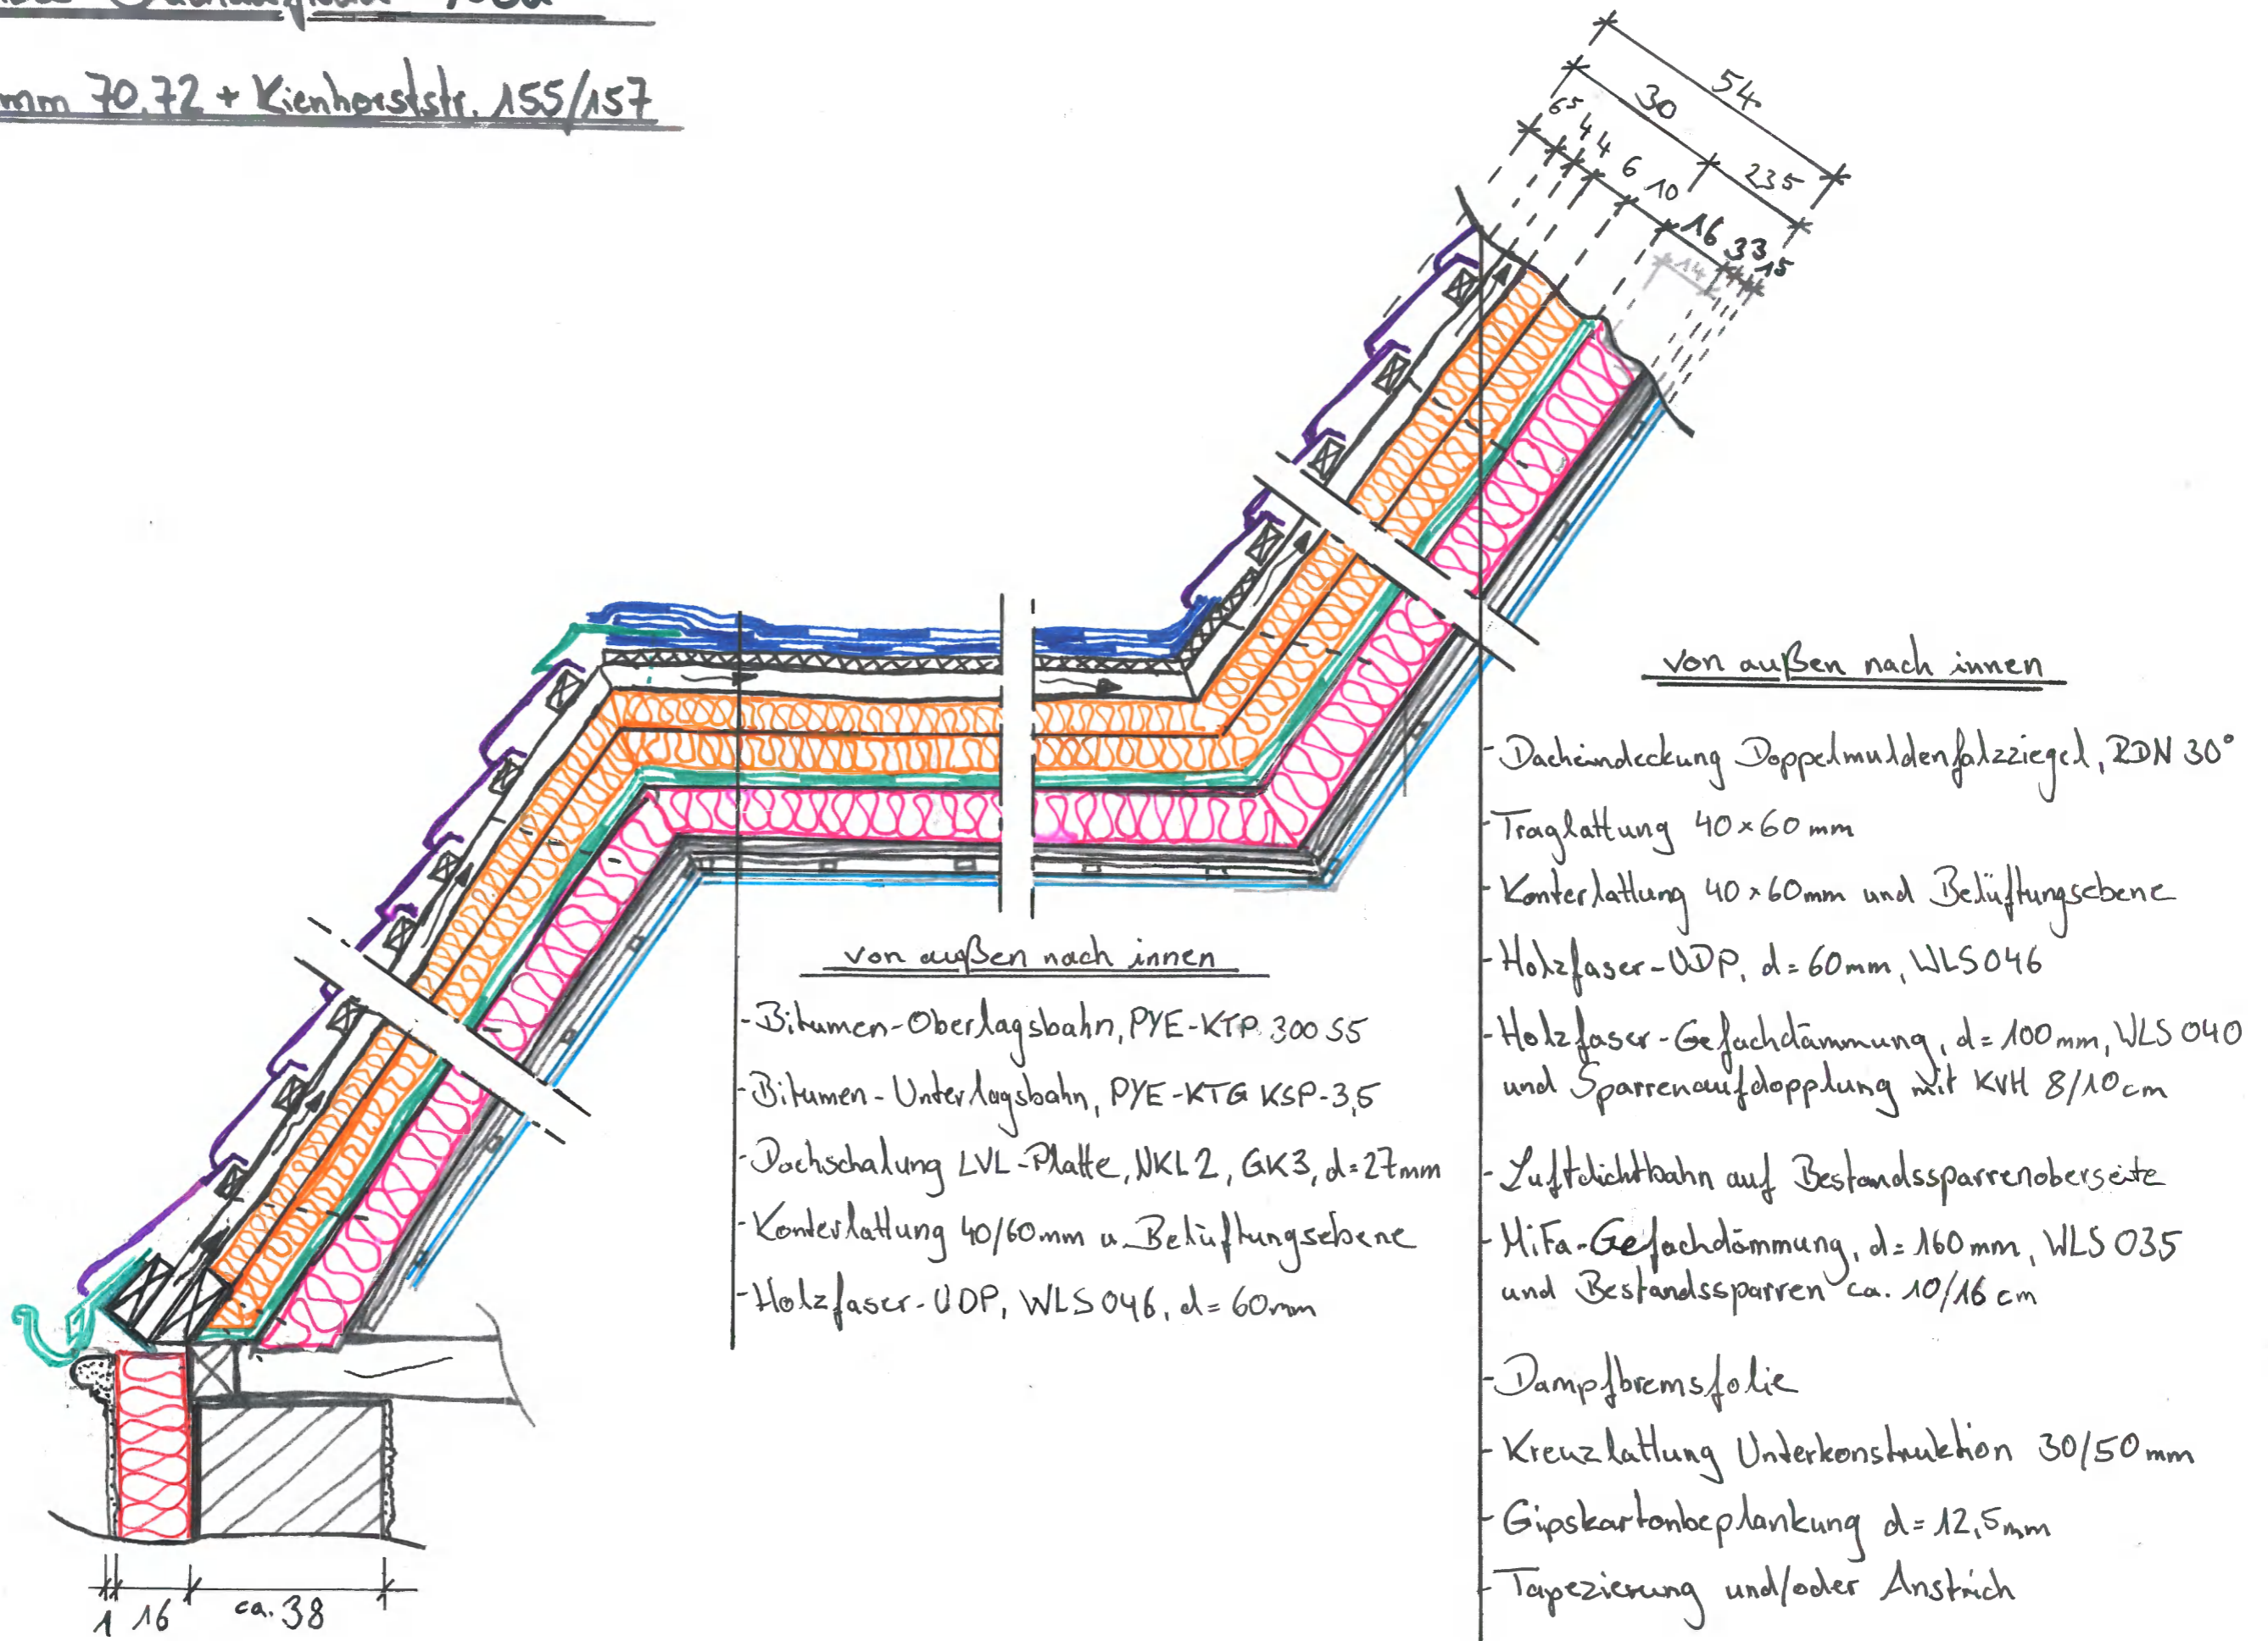 mm 70,72 + Kienhorststr. 155/157
54
30
23⁵
6⁵ 4 4 6 10 16 3 3 1⁵
14
von außen nach innen
- Dacheindeckung Doppelmuldenfalzziegel, RDN 30°
- Traglattung 40×60 mm
- Konterlattung 40×60mm und Belüftungsebene
- Holzfaser-UDP, d=60mm, WLS 046
- Holzfaser-Gefachdämmung, d=100mm, WLS 040
und Sparrenaufdopplung mit KVH 8/10 cm
- Luftdichtbahn auf Bestandssparrenoberseite
- MiFa-Gefachdämmung, d=160mm, WLS 035
und Bestandssparren ca. 10/16 cm
- Dampfbremsfolie
- Kreuzlattung Unterkonstruktion 30/50 mm
- Gipskartonbeplankung d=12,5mm
- Tapezierung und/oder Anstrich
von außen nach innen
- Bitumen-Oberlagsbahn, PYE-KTP 300 S5
- Bitumen-Unterlagsbahn, PYE-KTG KSP-3,5
- Dachschalung LVL-Platte, NKL2, GK3, d=27mm
- Konterlattung 40/60mm u. Belüftungsebene
- Holzfaser-UDP, WLS 046, d=60mm
1 16 ca. 38